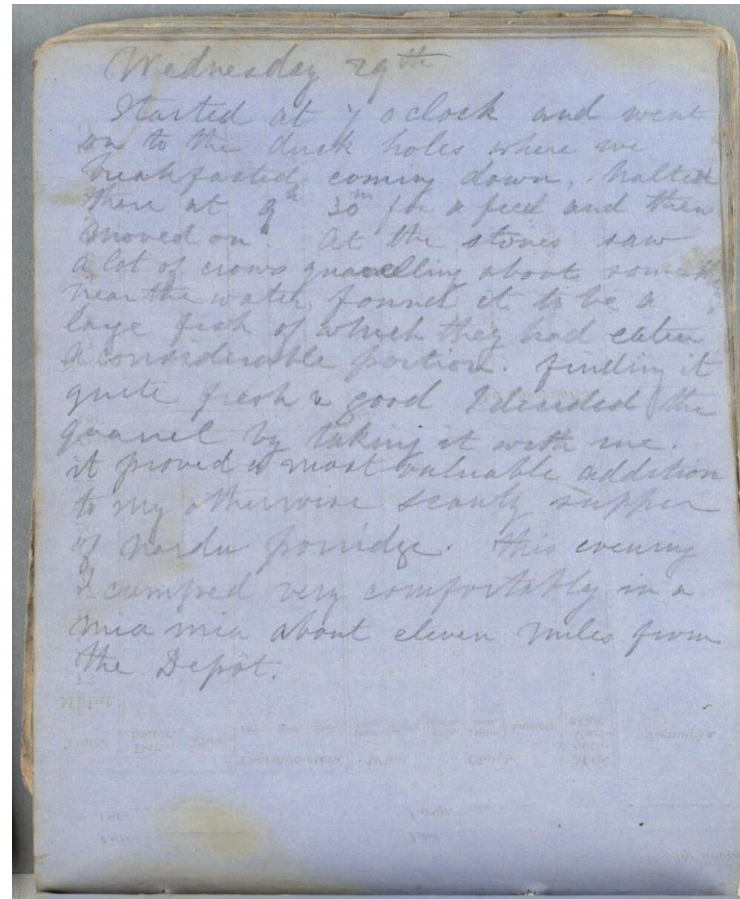 Wednesday 29th
Started at 7 oclock and went
on to the duck holes where we
breakfasted coming down. halted
there at 9h 30m for a feed and then
moved on. At the stones saw
a lot of crows quarrelling about
near the water found it to be a
large fish of which they had eaten
a considerable portion. finding it
quite fresh & good I decided the
quarrel by taking it with me.
it proved a most valuable addition
to my otherwise scanty supper
of nardu porridge. this evening
I camped very comfortably in a
mia mia about eleven miles from
the Depôt.